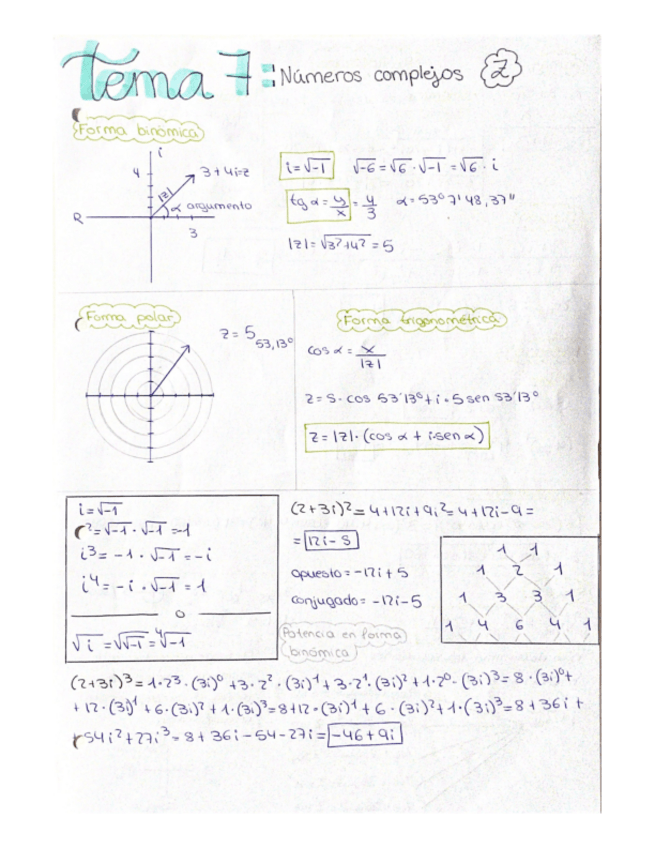 Tema 7: Números complejos Z
Forma binómica
i
4
3+4i=z
|z|
α argumento
R
3
i=√-1 √-6=√6·√-1=√6·i
tg α = y/x = 4/3 α=53º 7' 48,37''
|z|=√3²+4²=5
Forma polar
z=5 53,13º
Forma trigonométrica
cos α = x/|z|
z=5·cos 53'13º+i·5 sen 53'13º
z=|z|·(cos α + i·sen α)
i=√-1
i²=√-1·√-1=-1
i³=-1·√-1=-i
i⁴=-i·√-1=1
√i=√√-1=⁴√-1
(2+3i)²=4+12i+9i²=4+12i-9=
=12i-5
opuesto=-12i+5
conjugado=-12i-5
Potencia en forma
binómica
1 1
1 2 1
1 3 3 1
1 4 6 4 1
(2+3i)³=1·2³·(3i)⁰+3·2²·(3i)¹+3·2¹·(3i)²+1·2⁰·(3i)³=8·(3i)⁰+
+12·(3i)¹+6·(3i)²+1·(3i)³=8+12·(3i)¹+6·(3i)²+1·(3i)³=8+36i+
+54i²+27i³=8+36i-54-27i=-46+9i